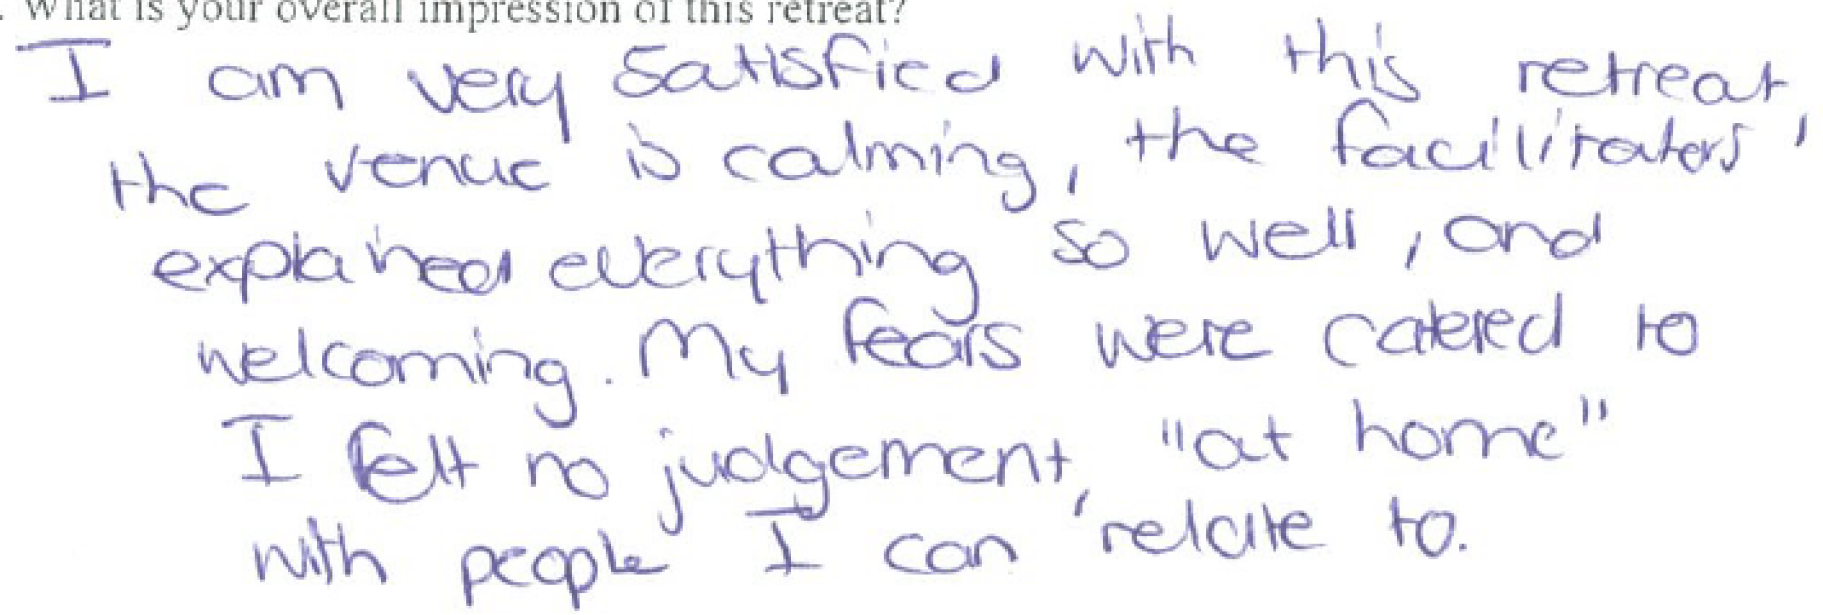 . What is your overall impression of this retreat?
I am very satisfied with this retreat,
the venue is calming, the facilitators
explained everything so well, and
welcoming. My fears were catered to
I felt no judgement, "at home"
with people I can relate to.